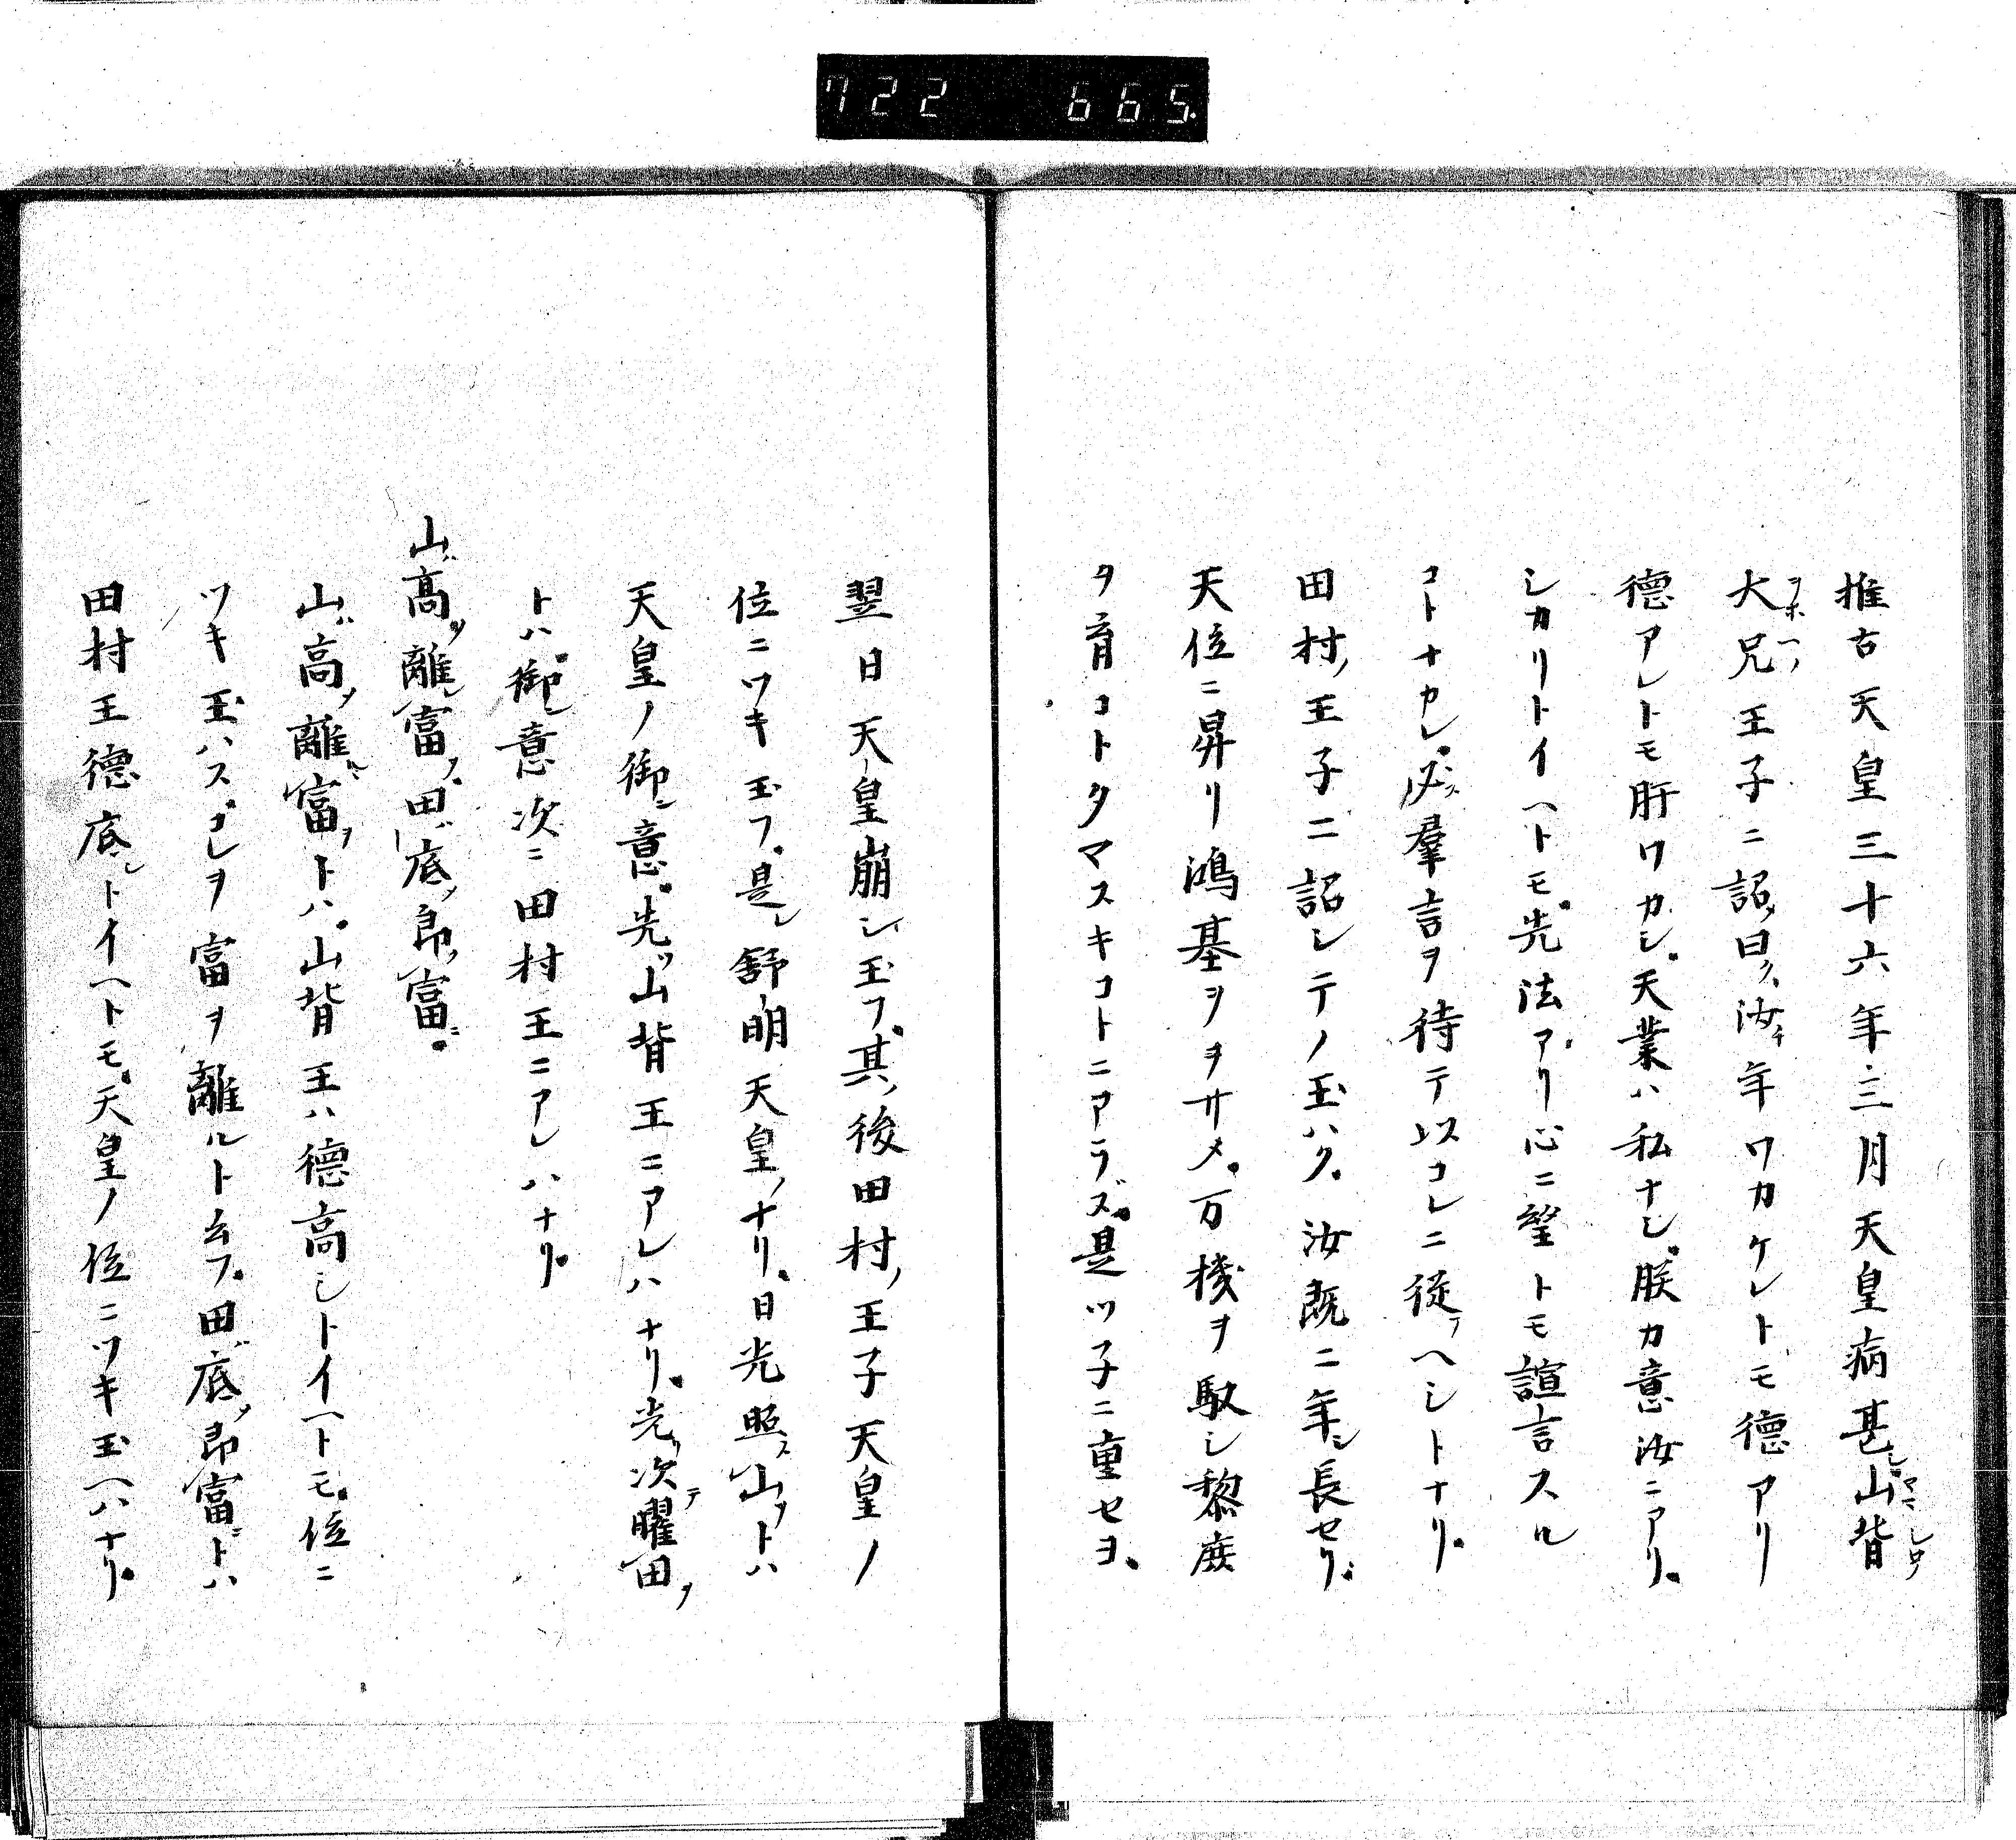 722 665.
推古天皇三十六年三月天皇病甚シ山背
大兄王子ニ詔メ曰ク汝チ年ワカケレトモ德アリ
德アレトモ肝ワカシ天業ハ私ナシ朕カ意汝ニアリ
シカリトイヘトモ先法アリ心ニ望トモ諠言スル
コトナカレ必ス羣言ヲ待テ以コレニ從フヘシトナリ
田村ノ王子ニ詔シテノ玉ハク汝既ニ年シ長セリ
天位ニ昇リ鴻基ヲヲサメ万機ヲ馭シ黎庶
タ育コトタマスキコトニアラズ是ツ子ニ重セヨ
翌日天皇崩シ玉フ其ノ後田村ノ王子天皇ノ
位ニツキ玉フ是レ舒明天皇ノナリ日光照ス山ヲトハ
天皇ノ御ン意先ツ山背王ニアレハナリ光ヲ次テ曜田ヲ
トハ御ン意次ニ田村王ニアレハナリ
山高ソ離レ富ヲ田底ノ即ソ富ニ
山高ソ離富ヲトハ山背王ハ德高シトイヘトモ位ニ
ツキ玉ハスコレヲ富ヲ離ルト云フ田底ソ即富ニトハ
田村王德底シトイヘトモ天皇ノ位ニツキ玉ヘハナリ